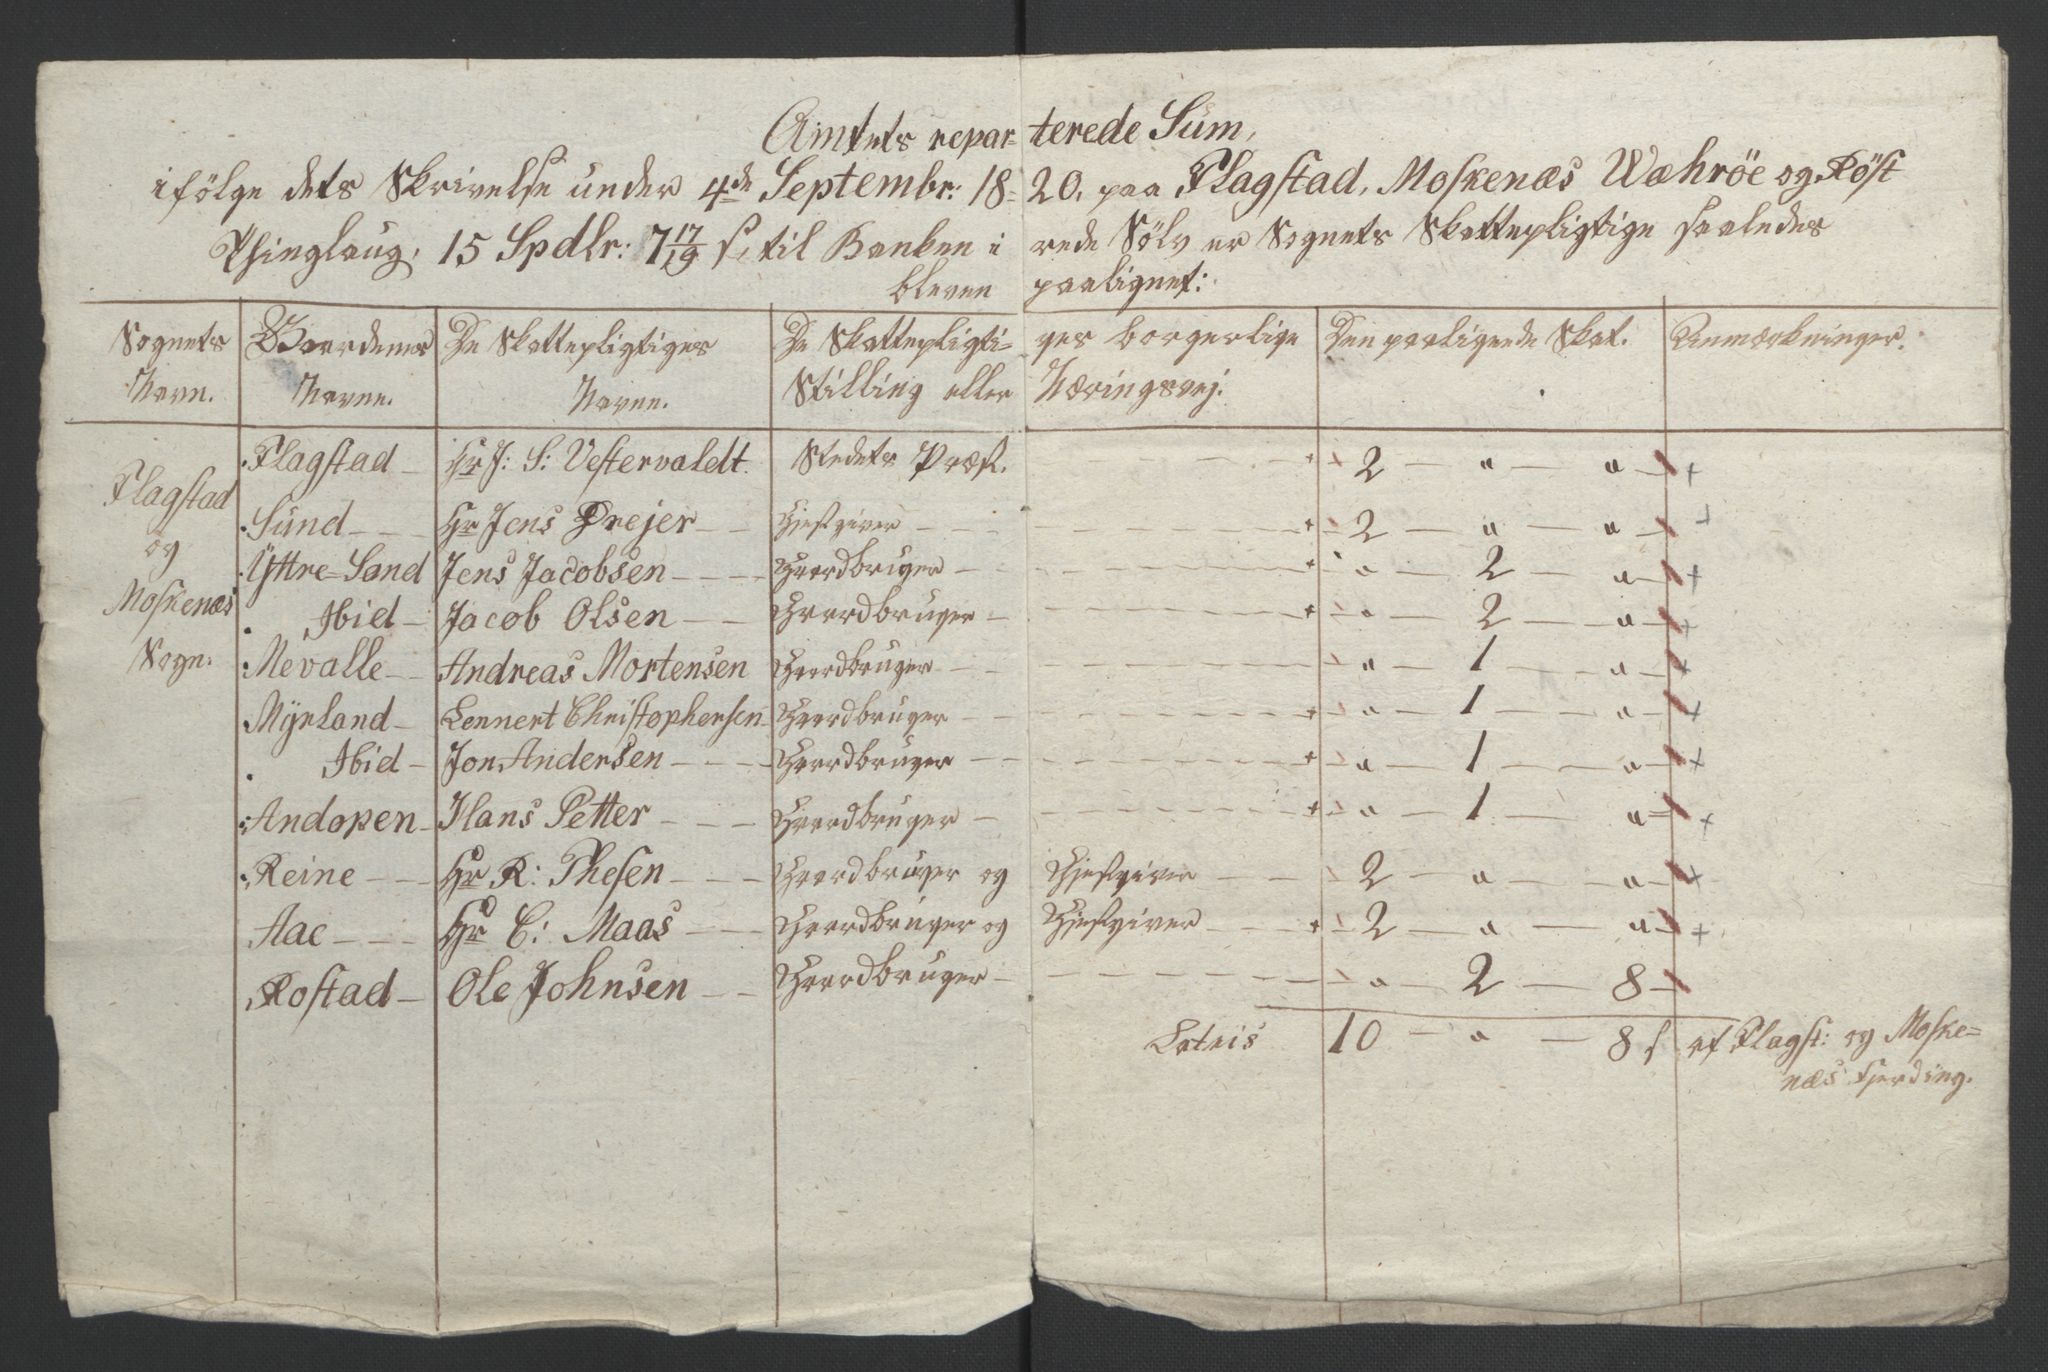 Amtets repar- terede Sum,
ifölge dets Skrivelse under 4de Septembr: 18- 20. paa Flagstad, Moskenæs Wæhröe og Röst
Thinglaug, 15 Spdlr: 7 17/19 s, til Banken i rede Sölv er Sognets Skattepligtige saaledes
bleven paalignet:
Sognets Navn. Gaardenes Navne. De Skattepligtiges Navne. De Skattepligti- ges borgerlige Stilling eller Næringsvej. Den paalignede Skat. Anmærkninger.
Flagstad og Moskenæs Sogn.
Flagstad — Hr J: S: Vestervaldt. Stedets Præst. 2 — " — " — +
Sund — Hr Jens Drejer — Gjestgiver — 2 — " — " — +
Yttre-Sand Jens Jacobsen — Gaardbruger — " — 2 — " — +
Ibid — Jacob Olsen — Gaardbruger — " — 2 — " — +
Mevalle — Andreas Mortensen Gaardbruger — " — 1 — " — +
Myrland — Lennert Christophersen Gaardbruger — " — 1 — " — +
Ibid — Jon Andersen — Gaardbruger — " — 1 — " — +
Andopen — Hans Petter — Gaardbruger — " — 1 — " — +
Reine — Hr R: Thesen — Gaardbruger og Gjestgiver — 2 — " — " — +
Aae — Hr C: Maas — Gaardbruger og Gjestgiver — 2 — " — " — +
Rostad — Ole Johnsen — Gaardbruger — " — 2 — 8 —
Lateis 10 — " — 8 s af Flagst: og Moske-
næs Fjerding.